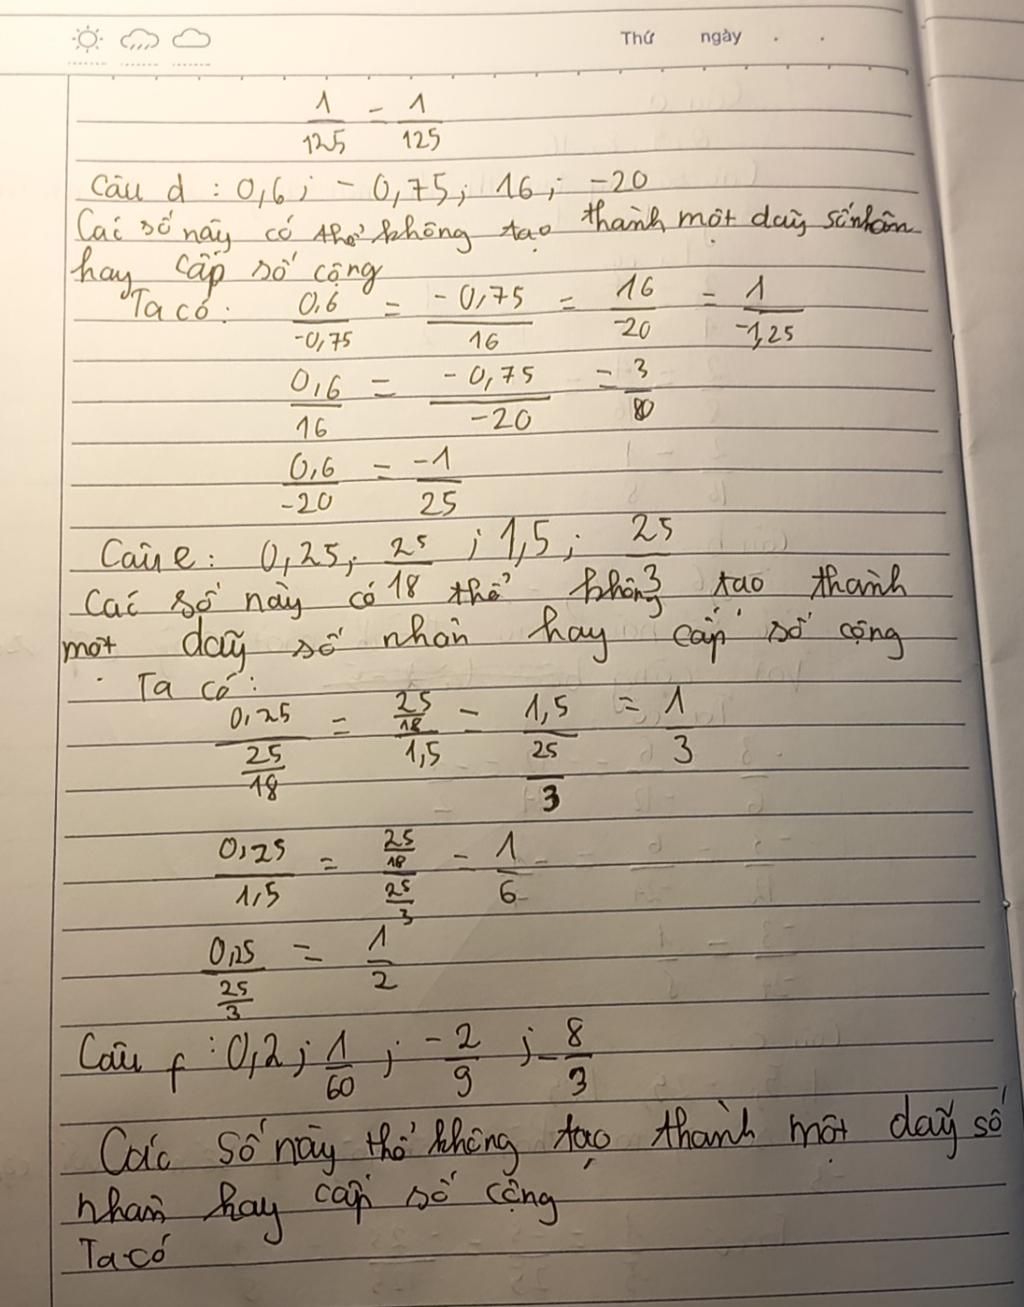 Thứ ngày . .
1/125 = 1/125
Câu d : 0,6 ; - 0,75 ; 16 ; -20
Các số này có thể không tạo thành một dãy số nhân
hay cấp số cộng
Ta có: 0,6/-0,75 = -0,75/16 = 16/-20 = 1/-1,25
0,6/16 = -0,75/-20 = 3/80
0,6/-20 = -1/25
Câu e: 0,25; 25/18 ; 1,5 ; 25/3
Các số này có thể không tạo thành
một dãy số nhân hay cấp số cộng
Ta có:
0,25/(25/18) = (25/18)/1,5 = 1,5/(25/3) = 1/3
0,25/1,5 = (25/18)/(25/3) = 1/6
0,25/(25/3) = 1/2
Câu f : 0,2 ; 1/60 ; -2/9 ; -8/3
Các số này thể không tạo thành một dãy số
nhân hay cấp số cộng
Ta có